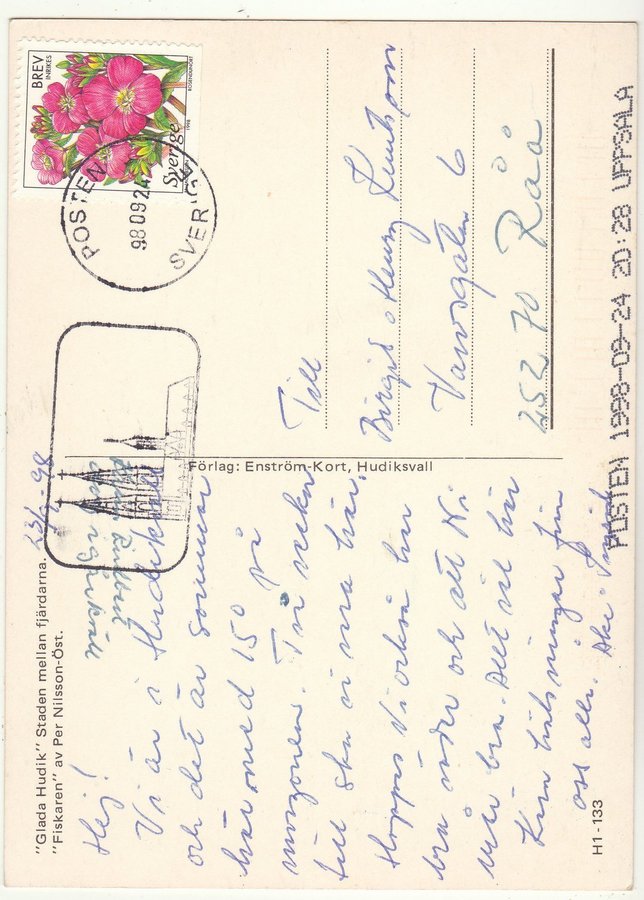 "Glada Hudik" Staden mellan fjärdarna.
"Fiskaren" av Per Nilsson-Öst.
23/9-98
Hej!
Vi är i Hudiksvall
och det är sommar
här med 15° på
morgonen. Tre veckor
till ska vi vara här.
Hoppas Vi också har
bra väder och att Ni
mår bra. Allt väl här
Kära hälsningar från
oss alla. Åke
H1-133
Förlag: Enström-Kort, Hudiksvall
BREV
INRIKES
Sverige
1998
ROSENDUNÖRT
POSTEN
98 09 24
SVERIGE
Till
Birgit o Henry
6
252 70 Råå
POSTEN 1998-09-24 20:28 UPPSALA